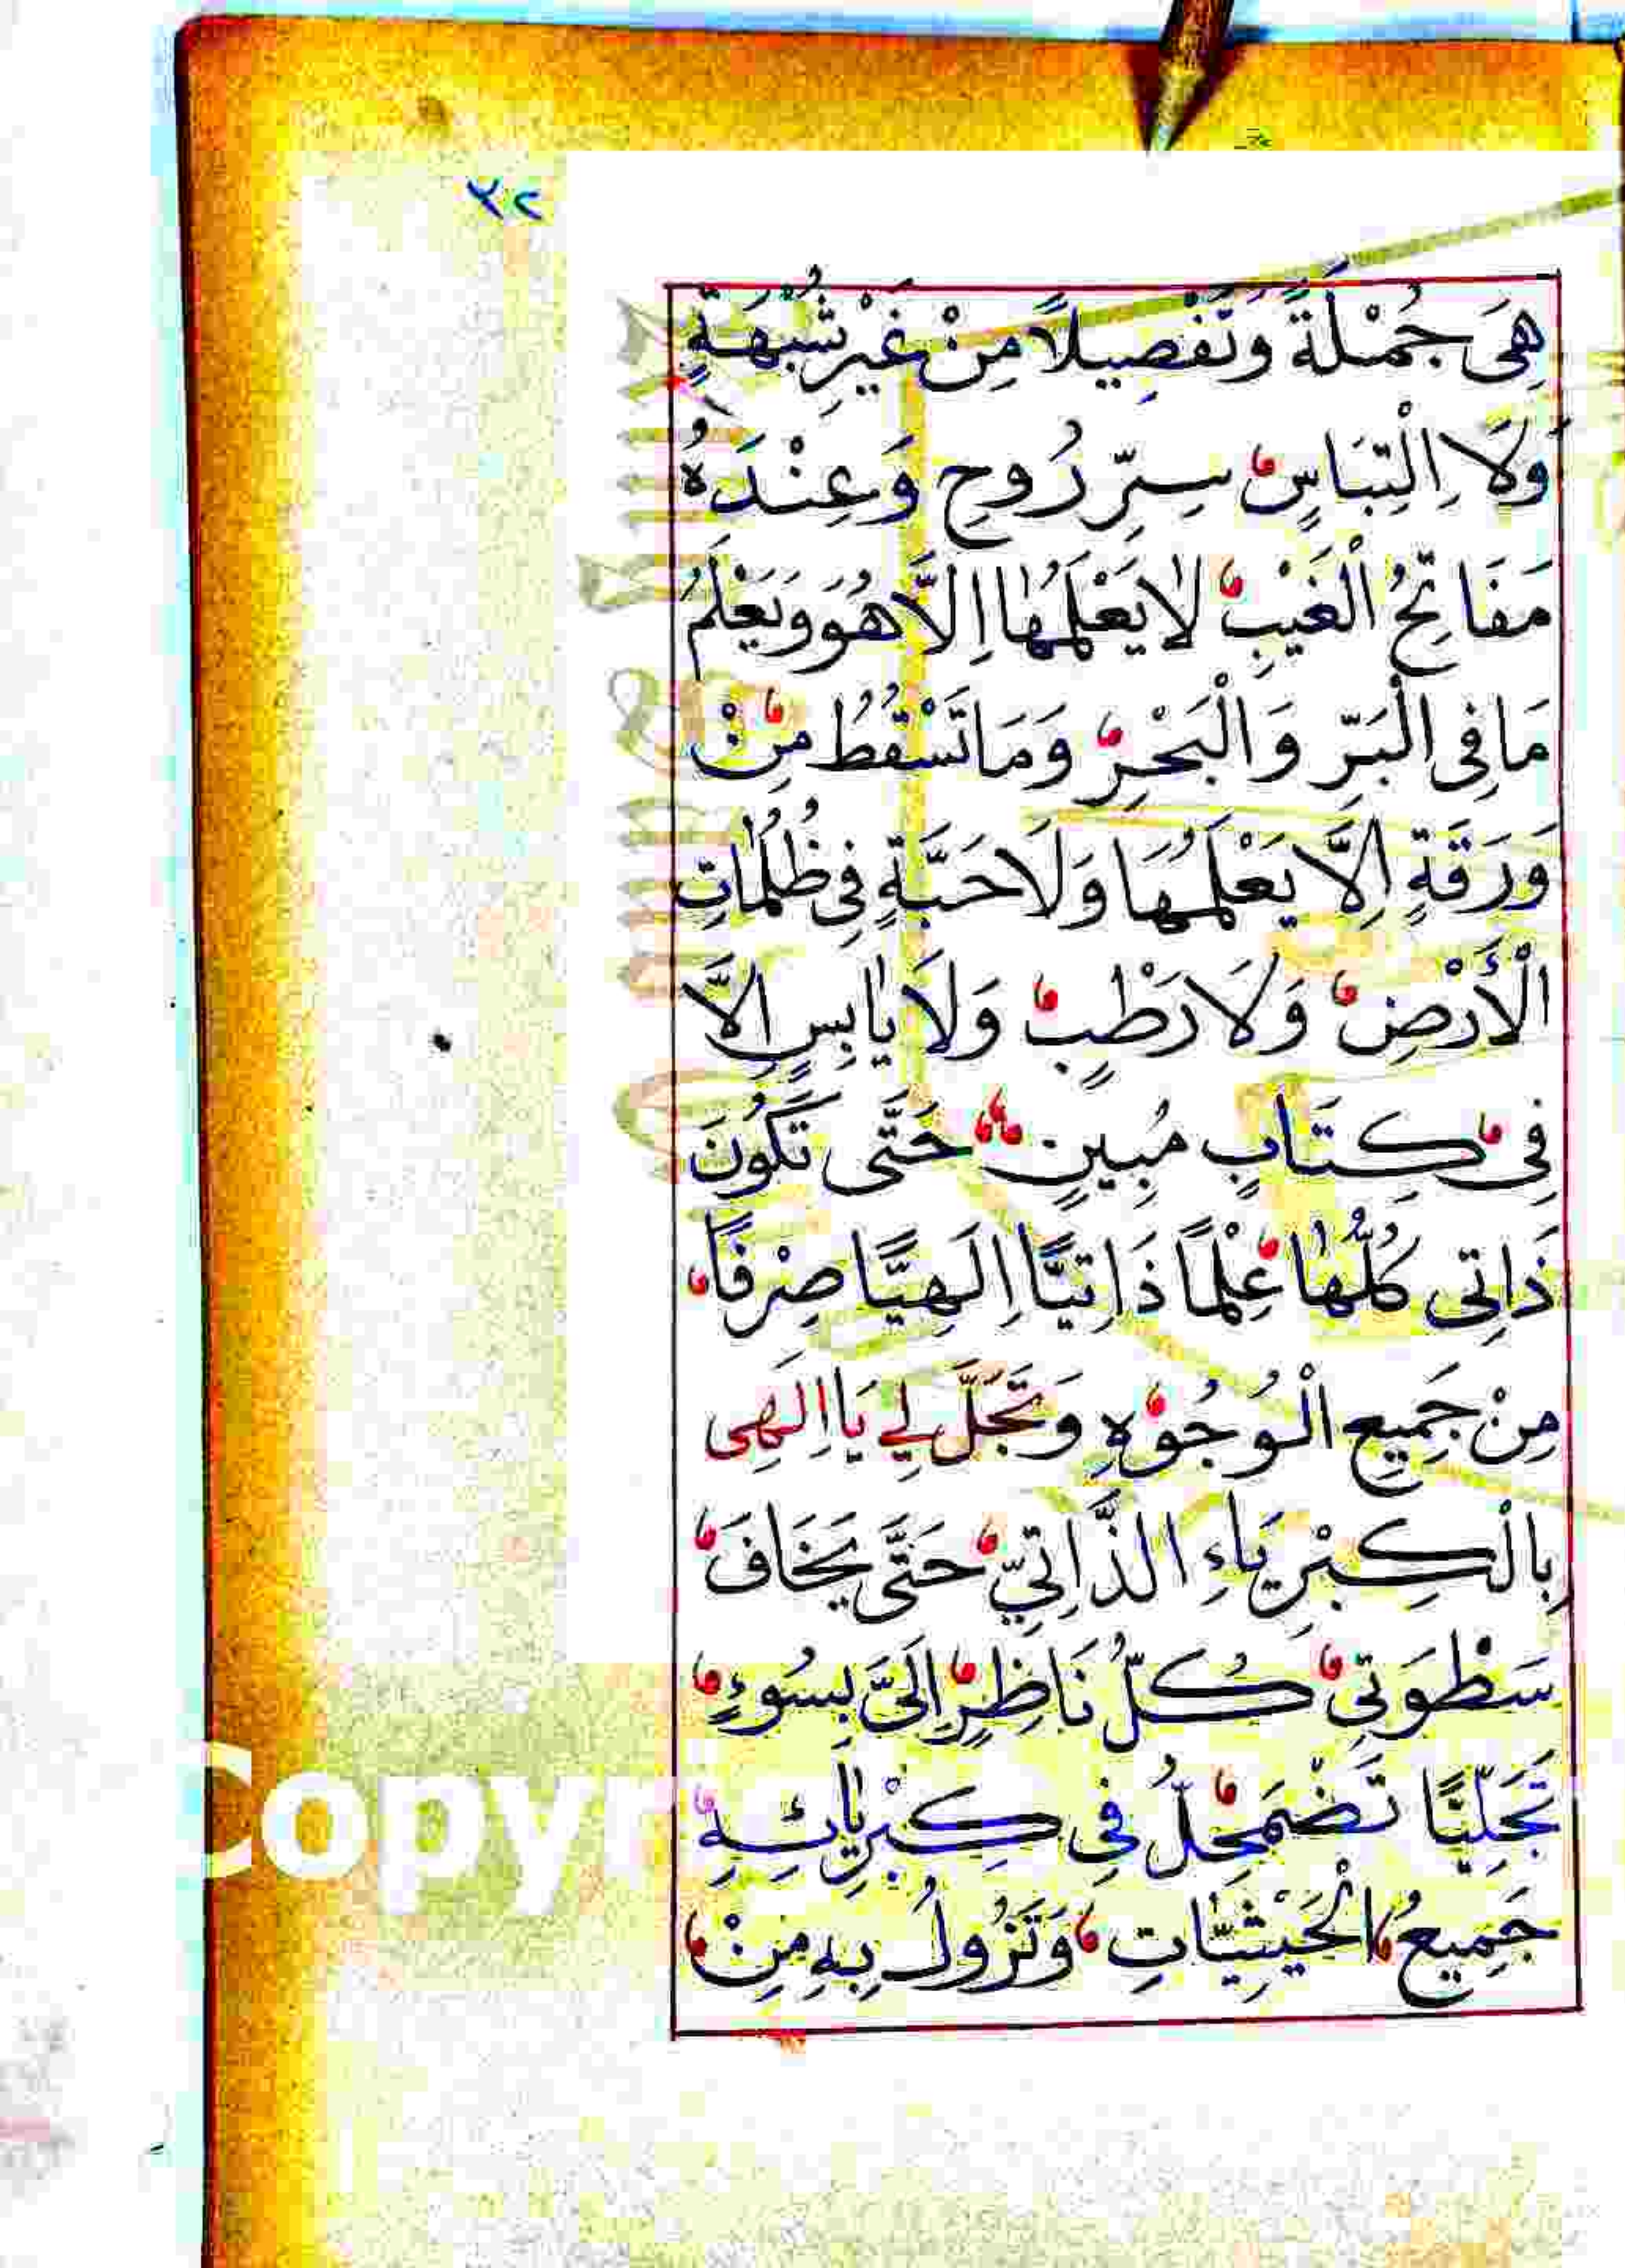 ٣٢
هِيَ جُمْلَةً وَتَفْصِيلًا مِنْ غَيْرِ شُبْهَةٍ
وَلَا اِلْتِبَاسٍ سِرِّ رُوحِ وَعِنْدَهُ
مَفَاتِحُ الْغَيْبِ لَا يَعْلَمُهَا اِلَّا هُوَ وَيَعْلَمُ
مَا فِى الْبَرِّ وَالْبَحْرِ وَمَا تَسْقُطُ مِنْ
وَرَقَةٍ اِلَّا يَعْلَمُهَا وَلَا حَبَّةٍ فِى ظُلُمَاتِ
الْأَرْضِ وَلَا رَطْبٍ وَلَا يَابِسٍ اِلَّا
فِى كِتَابٍ مُبِينٍ حَتَّى تَكُونَ
ذَاتِى كُلُّهَا عِلْمًا ذَاتِيًّا اِلَهِيًّا صِرْفًا
مِنْ جَمِيعِ الْوُجُوْهِ وَتَجَلَّ لِي يَا اِلَهِى
بِالْكِبْرِيَاءِ الذَّاتِيِّ حَتَّى يَخَافَ
سَطْوَتِي كُلُّ نَاظِرٍ اِلَىَّ بِسُوءٍ
تَجَلِّيًّا تَضْمَحِلُّ فِي كِبْرِيَائِهِ
جَمِيعُ الْحَيْثِيَّاتِ وَتَزُولُ بِهِ مِنْ
Copyr